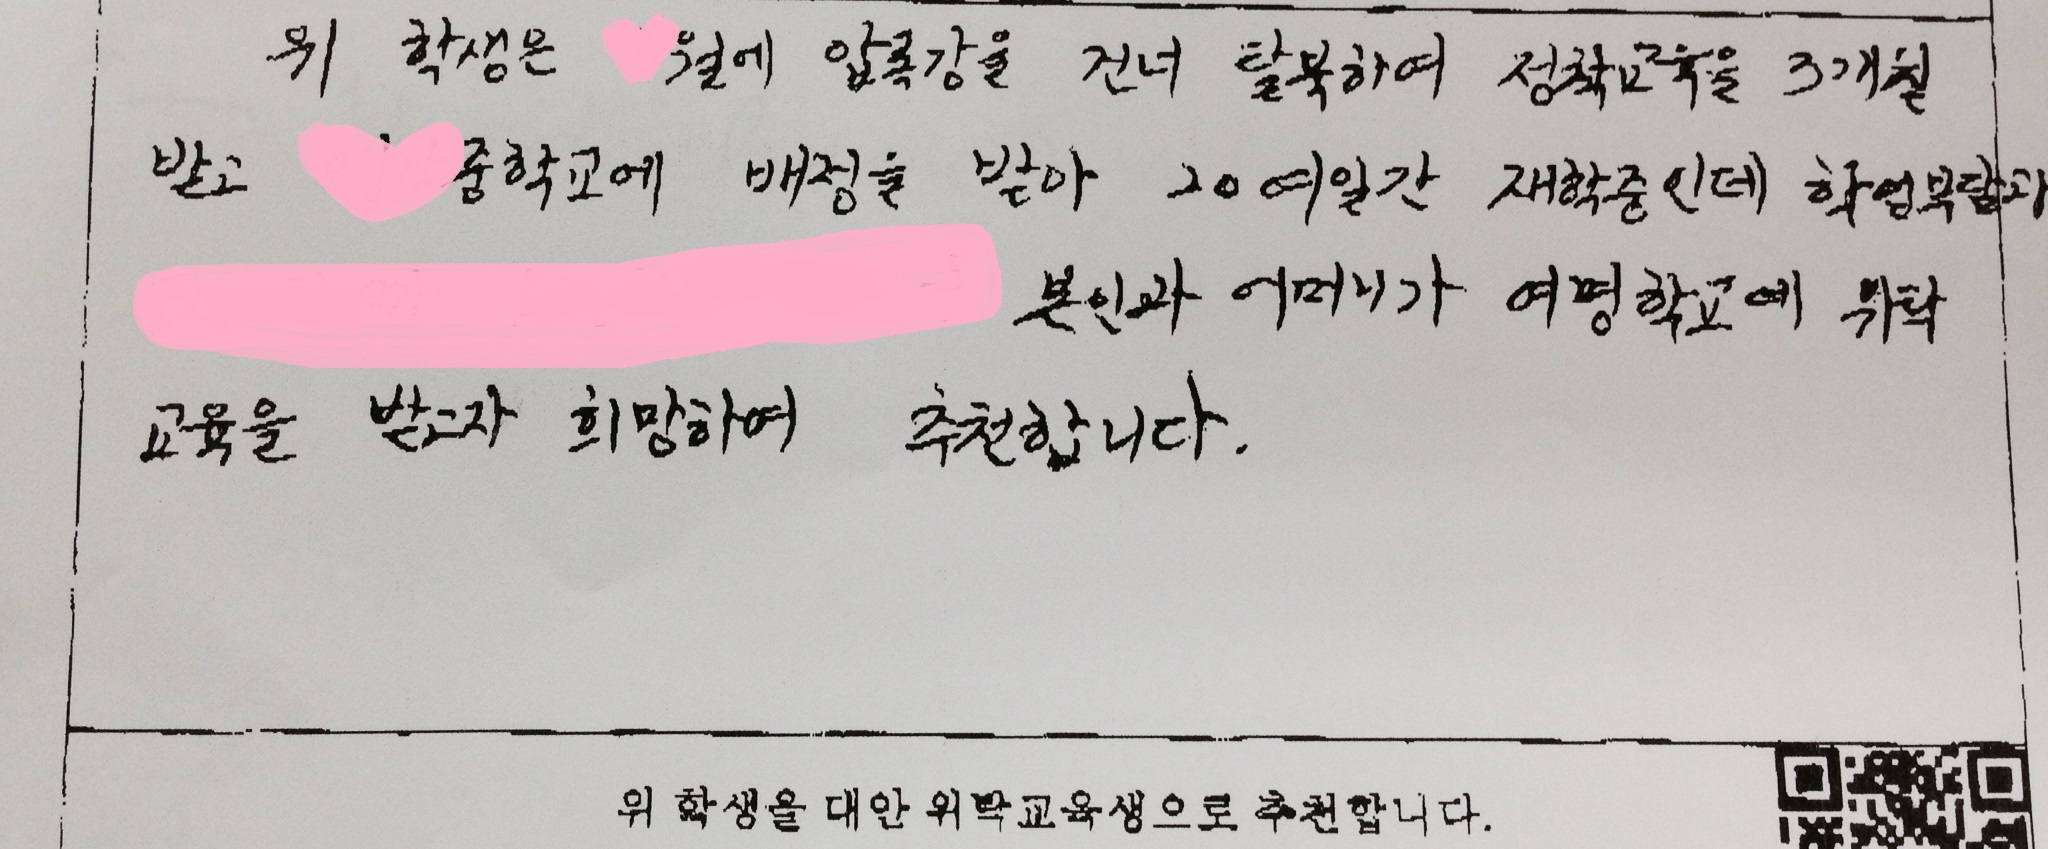 위 학생은 월에 압록강을 건너 탈북하여 정착교육을 3개월
받고 중학교에 배정을 받아 20여일간 재학중인데 학업부담과
본인과 어머니가 여명학교에 위탁
교육을 받고자 희망하여 추천합니다.
위 학생을 대안 위탁교육생으로 추천합니다.